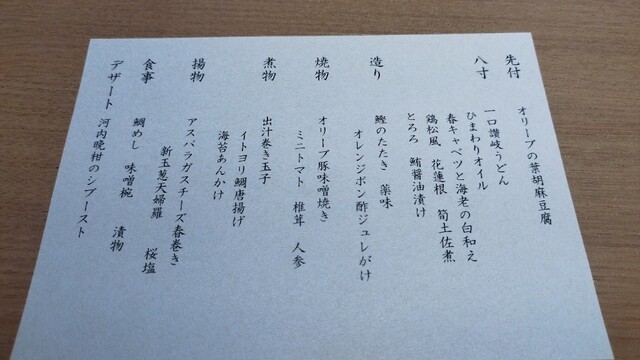 先付
オリーブの葉胡麻豆腐
八寸
一口讃岐うどん
ひまわりオイル
春キャベツと海老の白和え
鶏松風 花蓮根 筍土佐煮
とろろ 鮪醤油漬け
造り
鰹のたたき 薬味
オレンジポン酢ジュレがけ
焼物
オリーブ豚味噌焼き
ミニトマト 椎茸 人参
煮物
出汁巻き玉子
イトヨリ鯛唐揚げ
海苔あんかけ
揚物
アスパラガスチーズ春巻き
新玉葱天婦羅 桜塩
食事
鯛めし 味噌椀 漬物
デザート
河内晩柑のシブースト